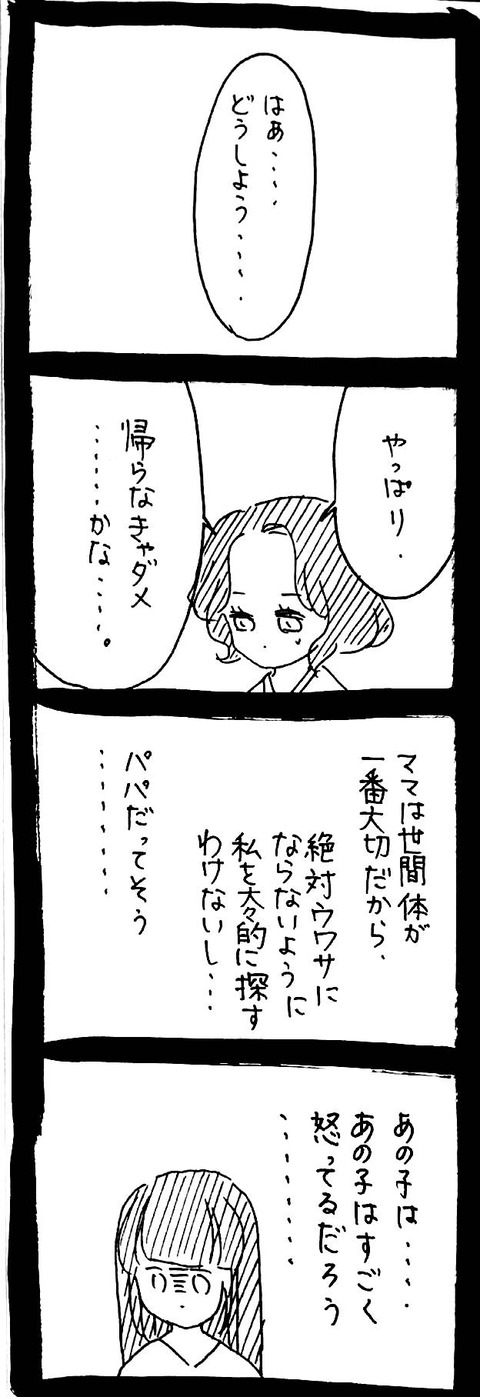 はあ・・・・
どうしよう・・・・
やっぱり・
帰らなきゃダメ
・・・・・・かな・・・・。
ママは世間体が
一番大切だから、
絶対ウワサに
ならないように
私を大々的に探す
わけないし・・・
パパだってそう
・・・・・・・・
あの子は・・・・
あの子はすごく
怒ってるだろう
・・・・・・・・